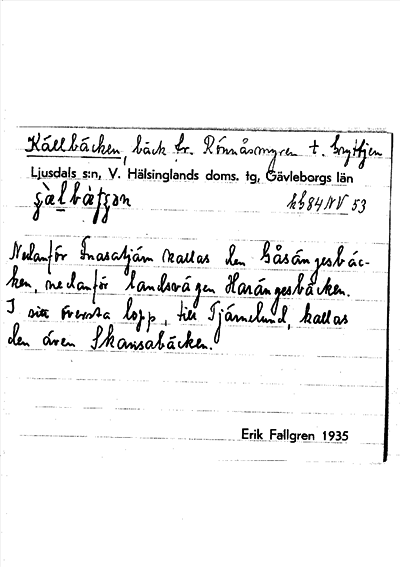 Källbäcken, bäck fr. Rönnåsmyren t. Gryttjen
Ljusdals s:n, V. Hälsinglands doms. tg, Gävleborgs län
53
Nedanför Snasatjärn kallas den Gåsängesbäc-
ken, nedanför landsvägen Harängesbäcken.
I sitt översta lopp, till Tjärnelund, kallas
den även Skansabäcken.
Erik Fallgren 1935